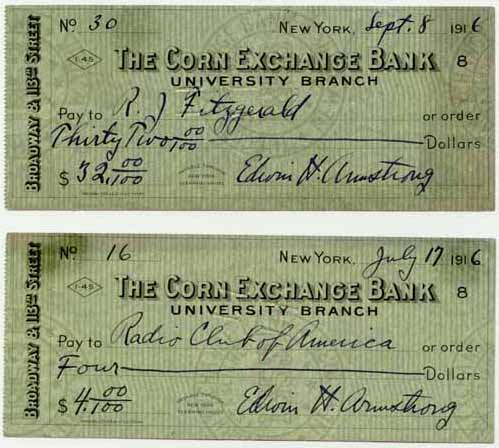 No 30 NEW YORK, Sept. 8 1916
BROADWAY & 113TH STREET
1-45 THE CORN EXCHANGE BANK 8
UNIVERSITY BRANCH
Pay to R. J Fitzgerald or order
Thirty Two 00/100 Dollars
$ 32.00/100 Edwin H. Armstrong
No 16 NEW YORK, July 17 1916
BROADWAY & 113TH STREET
1-45 THE CORN EXCHANGE BANK 8
UNIVERSITY BRANCH
Pay to Radio Club of America or order
Four Dollars
$ 4.00/100 Edwin H. Armstrong